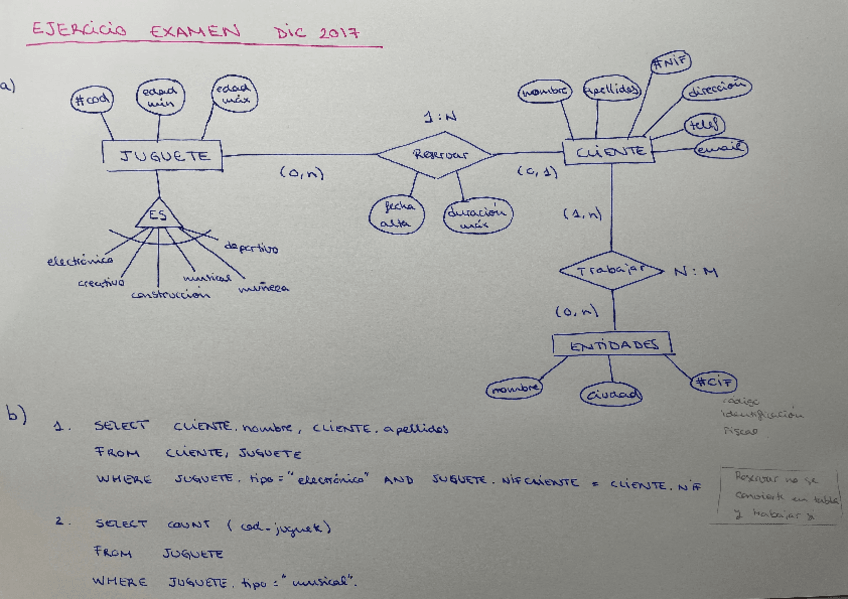 EJERCICIO EXAMEN DIC 2017
a)
#cod
edad
mín
edad
máx
JUGUETE
(0,n)
1:N
Reservar
(0,1)
fecha
alta
duración
máx
nombre
apellidos
#NIF
dirección
telef
email
CLIENTE
ES
electrónico
creativo
construcción
musical
muñeca
deportivo
(1,n)
Trabajar
N:M
(0,n)
ENTIDADES
nombre
ciudad
#CIF
código
identificación
fiscal
b)
1. SELECT CLIENTE.nombre, CLIENTE.apellidos
FROM CLIENTE, JUGUETE
WHERE JUGUETE.tipo="electrónico" AND JUGUETE.NIFCLIENTE = CLIENTE.NIF
Reservar no se
convierte en tabla
y trabajar sí
2. SELECT COUNT (cod_juguete)
FROM JUGUETE
WHERE JUGUETE.tipo="musical".